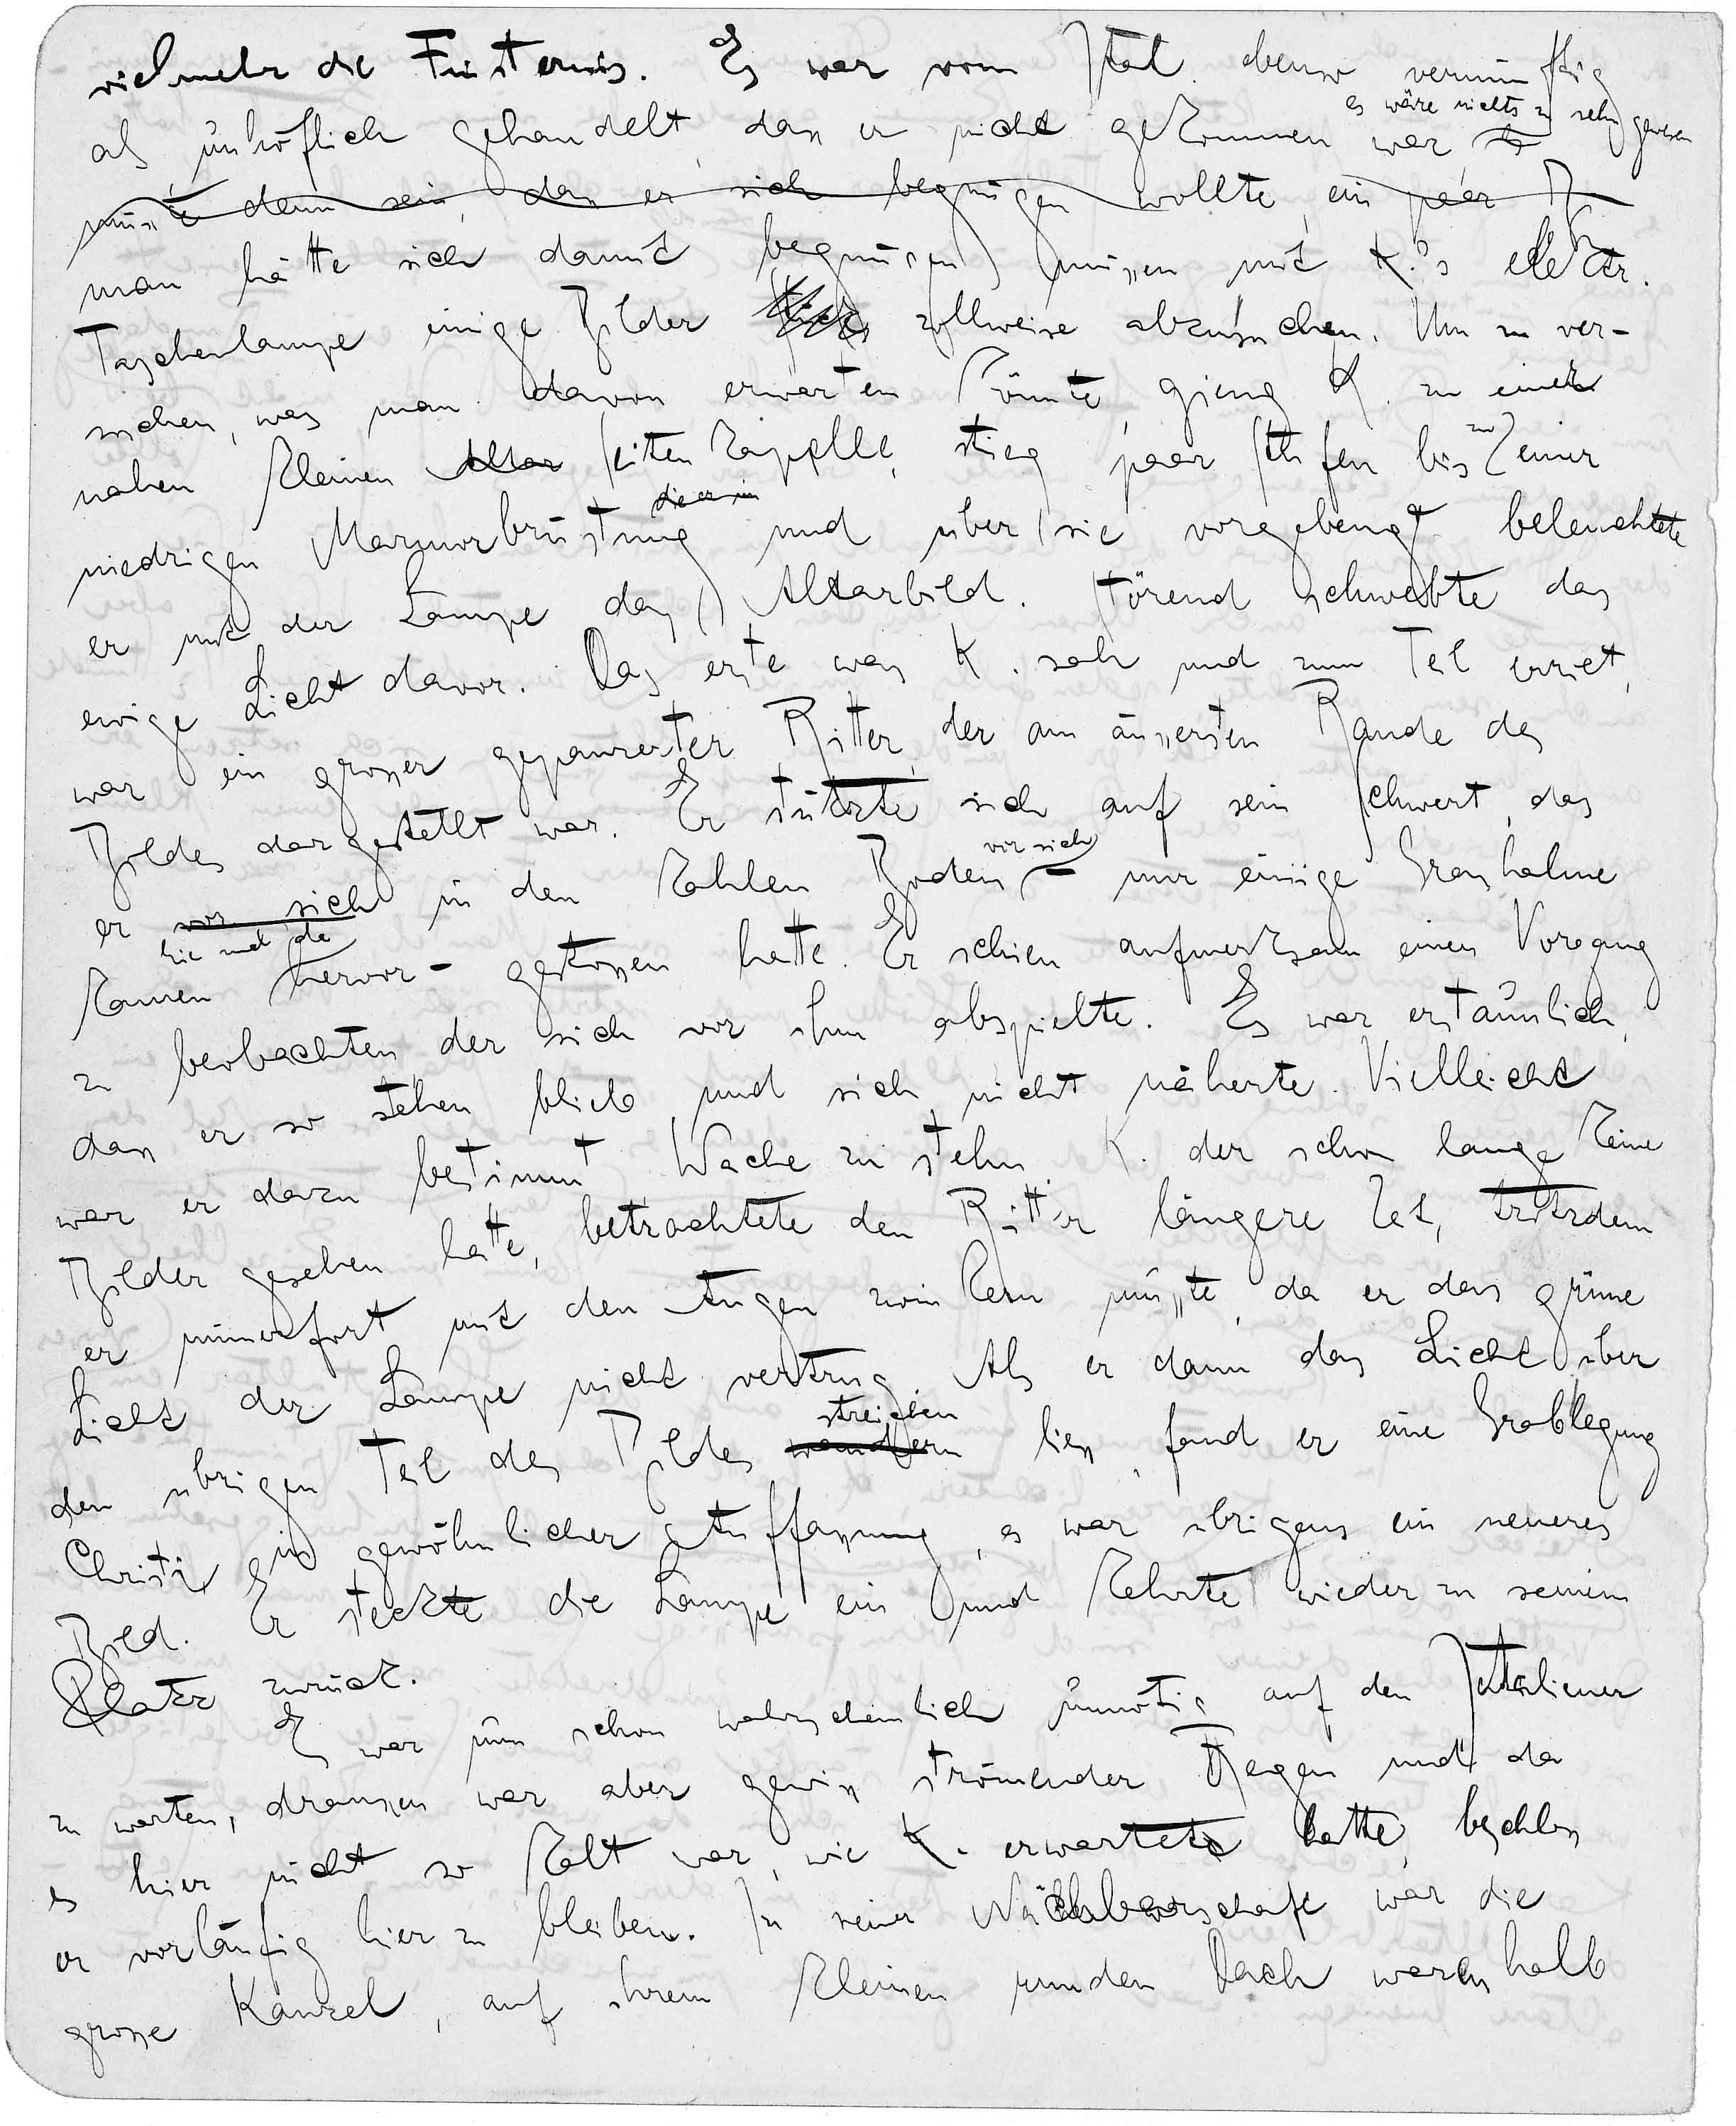 vielmehr die Finsternis. Es war vom Ital. ebenso vernünftig
es wäre nichts zu sehn gewesen
als unhöflich gehandelt, dass er nicht gekommen war es
müsste denn sein, dass er sich begnügen wollte, ein paar B
man hätte sich damit begnügen müssen mit K.'s elektr.
Taschenlampe einige Bilder zollweise abzusuchen. Um zu ver-
suchen, was man davon erwarten könnte, gieng K. zu einer
nahen kleinen Altar Seitenkappelle, stieg paar Stufen bis zu einer
die er im
niedrigen Marmorbrüstung und über sie vorgebeugt beleuchtete
er mit der Lampe das Altarbild. Störend schwebte das
ewige Licht davor. Das erste was K. sah und zum Teil erriet,
war ein grosser gepanzerter Ritter, der am äussersten Rande des
Bildes dargestellt war. Er stützte sich auf sein Schwert, das
vor sich
er vor sich in den kahlen Boden – nur einige Grashalme
hie und da
kamen hervor – gestossen hatte. Er schien aufmerksam einen Vorgang
zu beobachten, der sich vor ihm abspielte. Es war erstaunlich,
dass er so stehen blieb und sich nicht näherte. Vielleicht
war er dazu bestimmt Wache zu stehn. K. der schon lange keine
Bilder gesehen hatte, betrachtete den Ritter längere Zeit, trotzdem
er immerfort mit den Augen zwinkern musste, da er das grüne
Licht der Lampe nicht vertrug. Als er dann das Licht über
streichen
den übrigen Teil des Bildes wandern liess, fand er eine Grablegung
Christi in gewöhnlicher Auffassung, es war übrigens ein neueres
Bild. Er steckte die Lampe ein und kehrte wieder zu seinem
Platz zurück.
Es war nun schon wahrscheinlich unnötig auf den Italiener
zu warten, draussen war aber gewiss strömender Regen und da
es hier nicht so kalt war, wie K. erwartet hatte, beschloss
er vorläufig hier zu bleiben. In seiner Nachbarschaft war die
grosse Kanzel, auf ihrem kleinen runden Dach waren halb